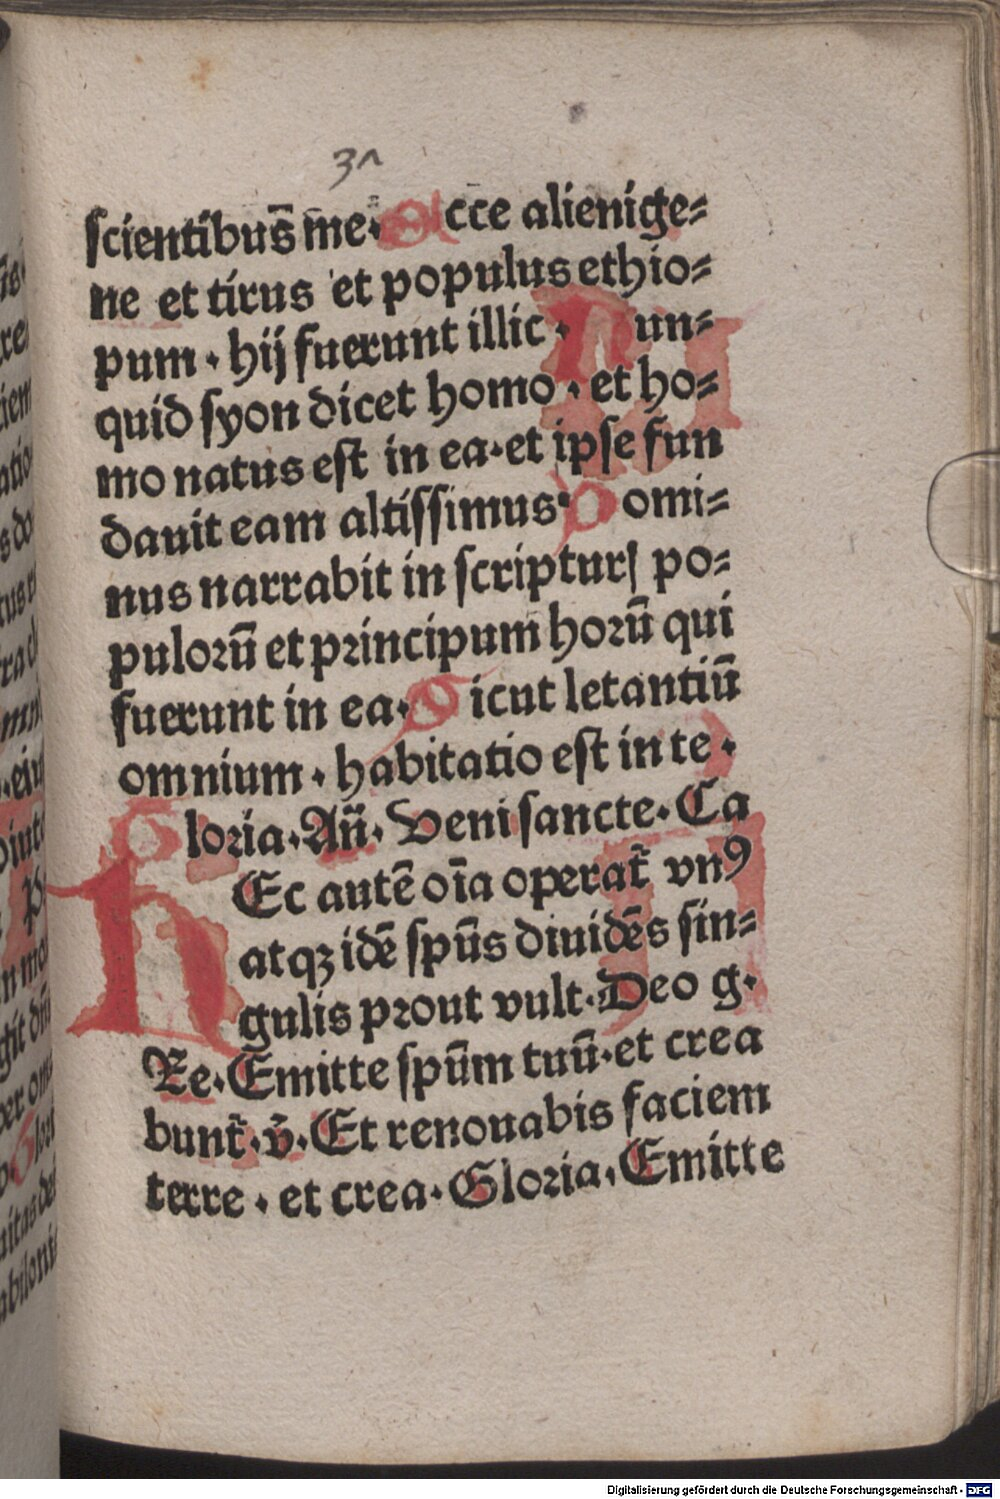 31
scientibus̄ me· Ecce alienige⸗
ne et tirus et populus ethio⸗
pum · hij fuerunt illic · Nun⸗
quid syon dicet homo · et ho⸗
mo natus est in ea·et ipse fun
dauit eam altissimus· Domi⸗
nus narrabit in scripturꝭ po⸗
pulorū et principum horū qui
fuerunt in ea· Sicut letantiū
omnium · habitatio est in te ·
Gloria·Añ· Veni sancte· Ca
HEc autē oīa operat̄ vnꝰ
atqꝫ idē spūs diuidēs sin⸗
gulis prout vult·Deo g·
Re·Emitte spūm tuū·et crea
bunt̄·v̄·Et renouabis faciem
terre · et crea·Gloria·Emitte
Digitalisierung gefördert durch die Deutsche Forschungsgemeinschaft - DFG